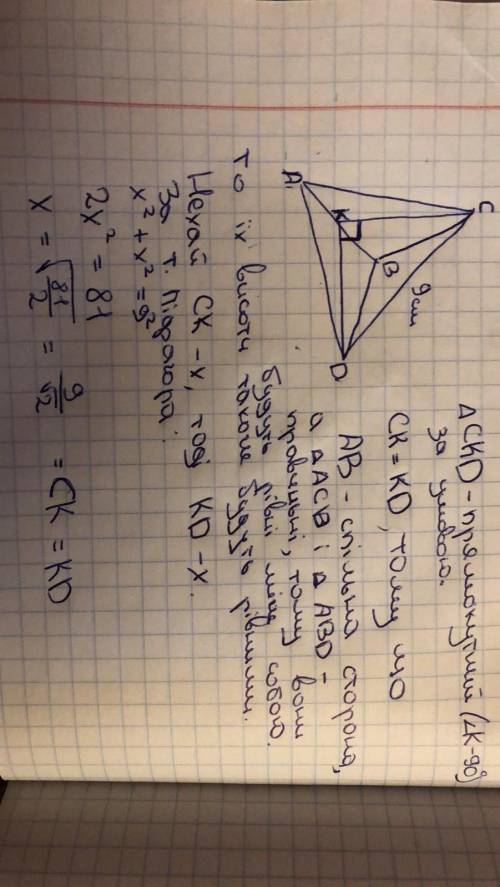 C
9 см
A
K
B
D
ΔCKD - прямокутний (∠K-90°)
за умовою.
CK = KD, тому що
AB - спільна сторона,
а ΔACB і ΔABD -
правильні, тому вони
будуть рівні між собою.
то їх висоти також будуть рівними.
Нехай CK - x, тоді KD - x.
За т. Піфагора:
x² + x² = 9²
2x² = 81
x = √(81/2) = 9/√2 = CK = KD